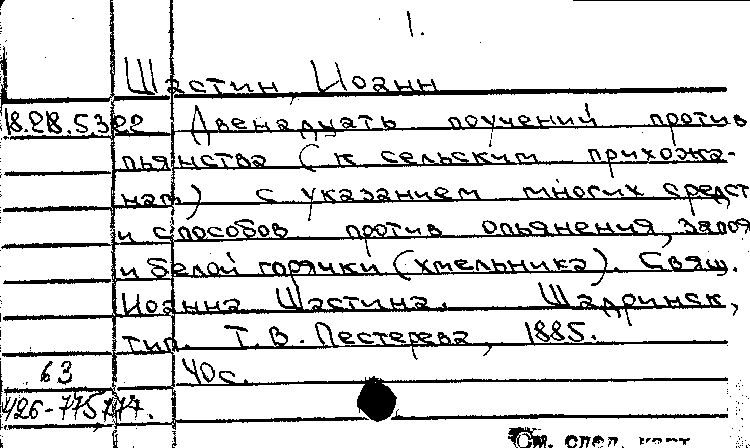 1.
Шастин, Иоанн
18.28.5.322 Двенадцать поучений против
пьянства (к сельским прихожа-
нам) с указанием многих средст
и способов против опьянения, запоя
и белой горячки (хмельника). Свящ.
Иоанна Шастина. Шадринск,
тип. Т. В. Пестерева, 1885.
63 40 с.
426-775,777.
См. спец. карт